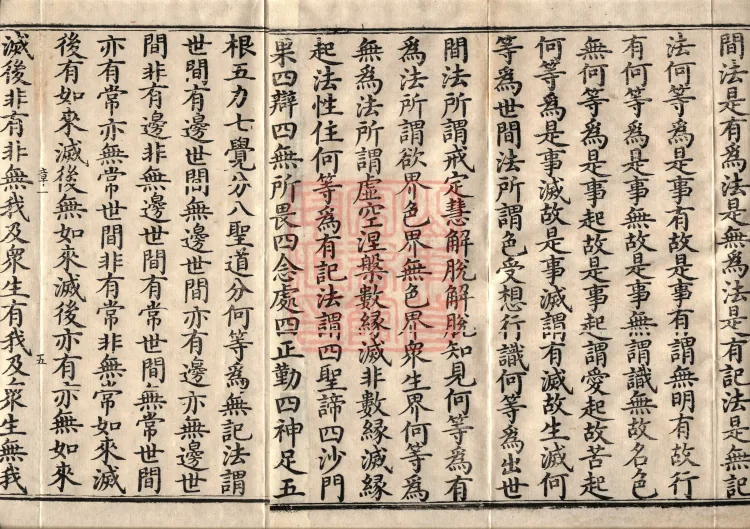 間法是有爲法是無爲法是有記法是無記
法何等爲是事有故是事有謂無明有故行
有何等爲是事無故是事無謂識無故名色
無何等爲是事起故是事起謂愛起故苦起
何等爲是事滅故是事滅謂有滅故生滅何
等爲世間法所謂色受想行識何等爲出世
間法所謂戒定慧解脫解脫知見何等爲有
爲法所謂欲界色界無色界衆生界何等爲
無爲法所謂虛空涅槃數緣滅非數緣滅緣
起法性住何等爲有記法謂四聖諦四沙門
果四辯四無所畏四念處四正勤四神足五
根五力七覺分八聖道分何等爲無記法謂
世間有邊世間無邊世間亦有邊亦無邊世
間非有邊非無邊世間有常世間無常世間
亦有常亦無常世間非有常非無常如來滅
後有如來滅後無如來滅後亦有亦無如來
章一
五
滅後非有非無我及衆生有我及衆生無我